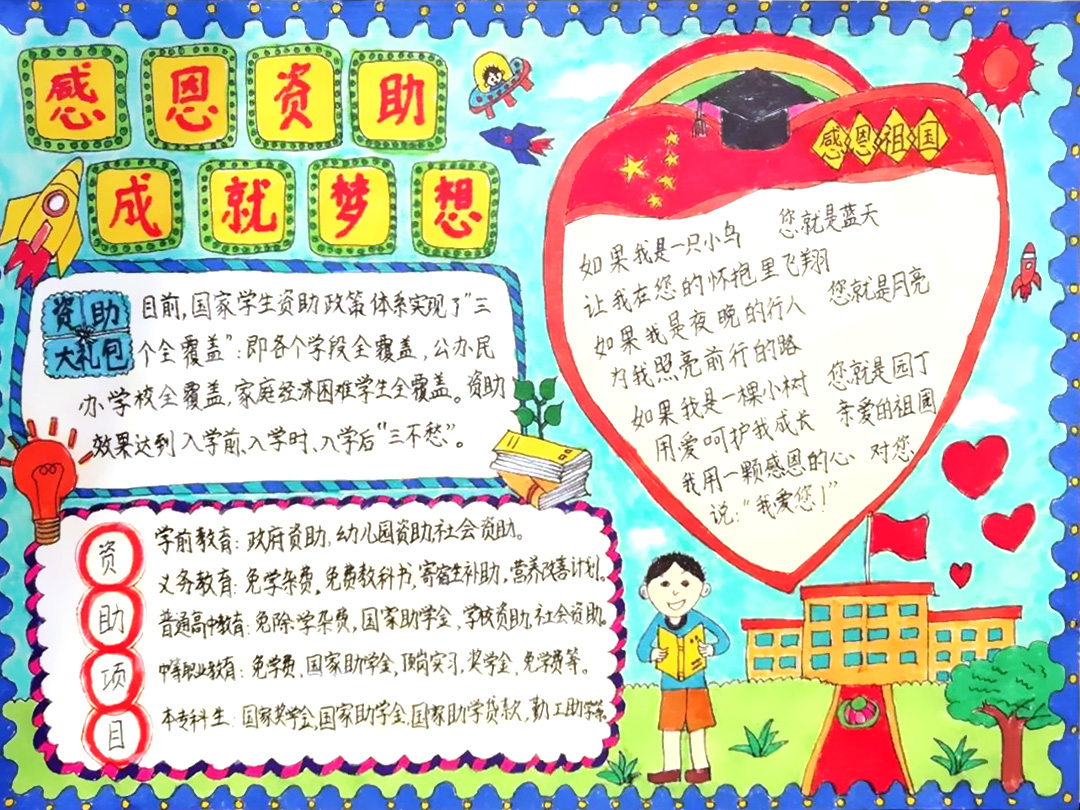 感恩资助
成就梦想
资助
大礼包
目前,国家学生资助政策体系实现了"三
个全覆盖":即各个学段全覆盖,公办民
办学校全覆盖,家庭经济困难学生全覆盖。资助
效果达到入学前、入学时、入学后"三不愁"。
资助项目
学前教育:政府资助,幼儿园资助,社会资助。
义务教育:免学杂费,免费教科书,寄宿生补助,营养改善计划。
普通高中教育:免除学杂费,国家助学金,学校资助,社会资助。
中等职业教育:免学费,国家助学金,顶岗实习,奖学金,免学费等。
本专科生:国家奖学金,国家助学金,国家助学贷款,勤工助学等。
感恩祖国
如果我是一只小鸟 您就是蓝天
让我在您的怀抱里飞翔
如果我是夜晚的行人 您就是月亮
为我照亮前行的路
如果我是一棵小树 您就是园丁
用爱呵护我成长 亲爱的祖国
我用一颗感恩的心 对您
说:"我爱您!"